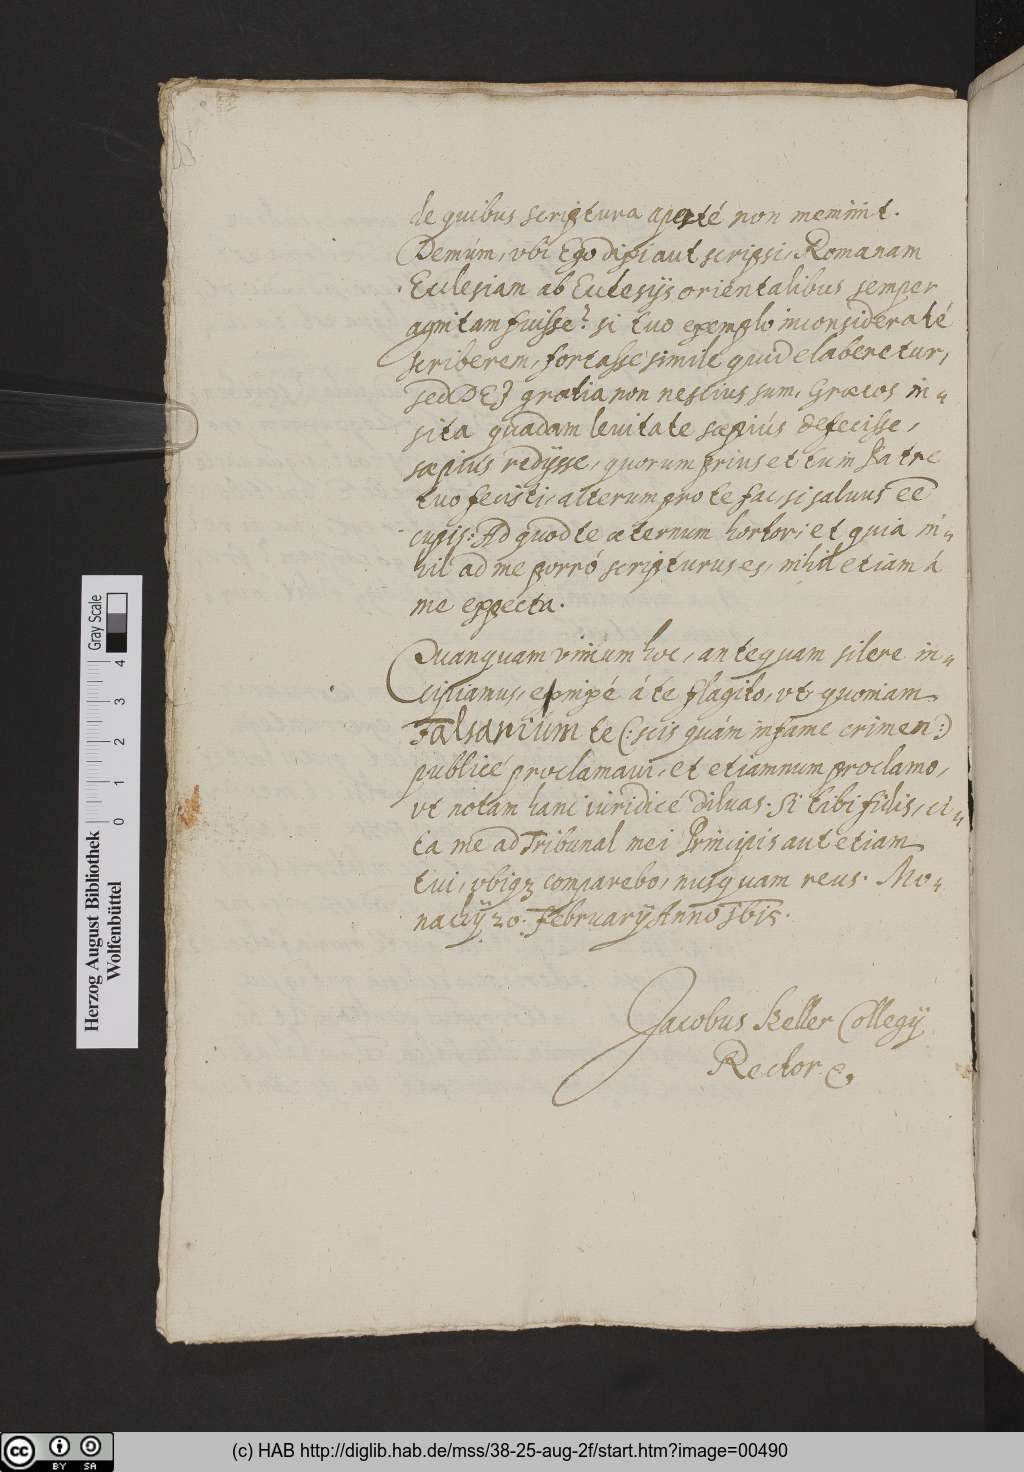 de quibus scriptura aperté non meminit.
Demùm, vbi Ego dixi aut scripsi, Romanam
Ecclesiam ab Ecclesijs orientalibus semper
agnitam fuisse? si tuo exemplo inconsideraté
scriberem, fortasse simile quid elaberetur,
sed DEJ gratia non nescius sum, Græcos in-
sita quadam leuitate sæpiús defecisse,
sæpiús redijsse, quorum prius et tu in Patre
tuo fecisti, alterum pro te fac, si saluus ee
cupis: Ad quod te æternum hortor, et quia ni-
hil ad me porró scripturus es, nihil etiam á
me expecta.
Quanquam vnicum hoc, antequam silere in-
cipiamus, enixé á te flagito, vt quoniam
Falsarium te (: scis quám infame crimen :)
publicé proclamaui, et etiamnum proclamo,
vt notam hanc iuridicé diluas. Si tibi fidis, ci-
ta me ad Tribunal mei Principis aut etiam
tui, vbiqz comparebo, nusquam reus. Mo-
nachij 20. February Anno 1615.
Jacobus Keller Collegij
Rector
Herzog August Bibliothek
Wolfenbüttel
Gray Scale
0 1 2 3 4
cc BY SA
(c) HAB http://diglib.hab.de/mss/38-25-aug-2f/start.htm?image=00490